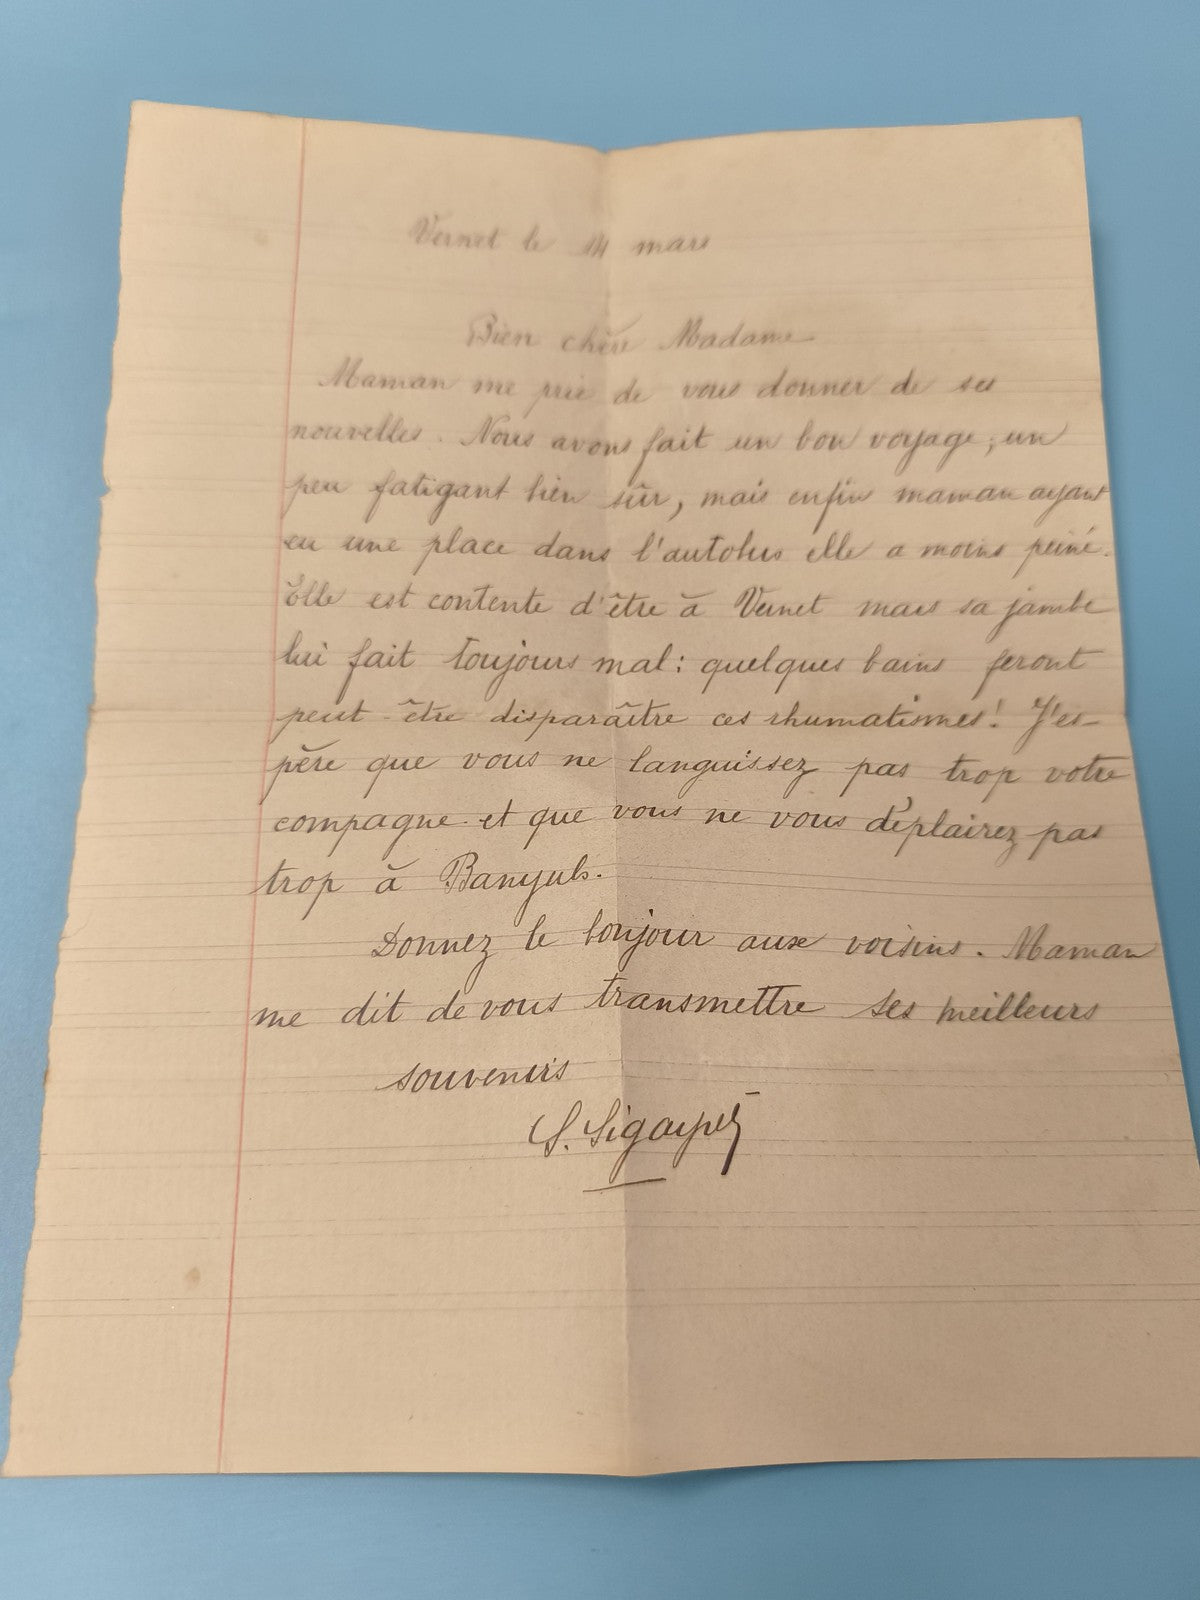 Vernet le 14 mars
Bien chère Madame
Maman me prie de vous donner de ses
nouvelles. Nous avons fait un bon voyage, un
peu fatigant bien sûr, mais enfin maman ayant
eu une place dans l'autobus elle a moins peiné.
Elle est contente d'être à Vernet mais sa jambe
lui fait toujours mal: quelques bains feront
peut-être disparaître ces rhumatismes! J'es-
père que vous ne languissez pas trop votre
compagne et que vous ne vous déplairez pas
trop à Banyuls.
Donnez le bonjour aux voisins. Maman
me dit de vous transmettre ses meilleurs
souvenirs
S.